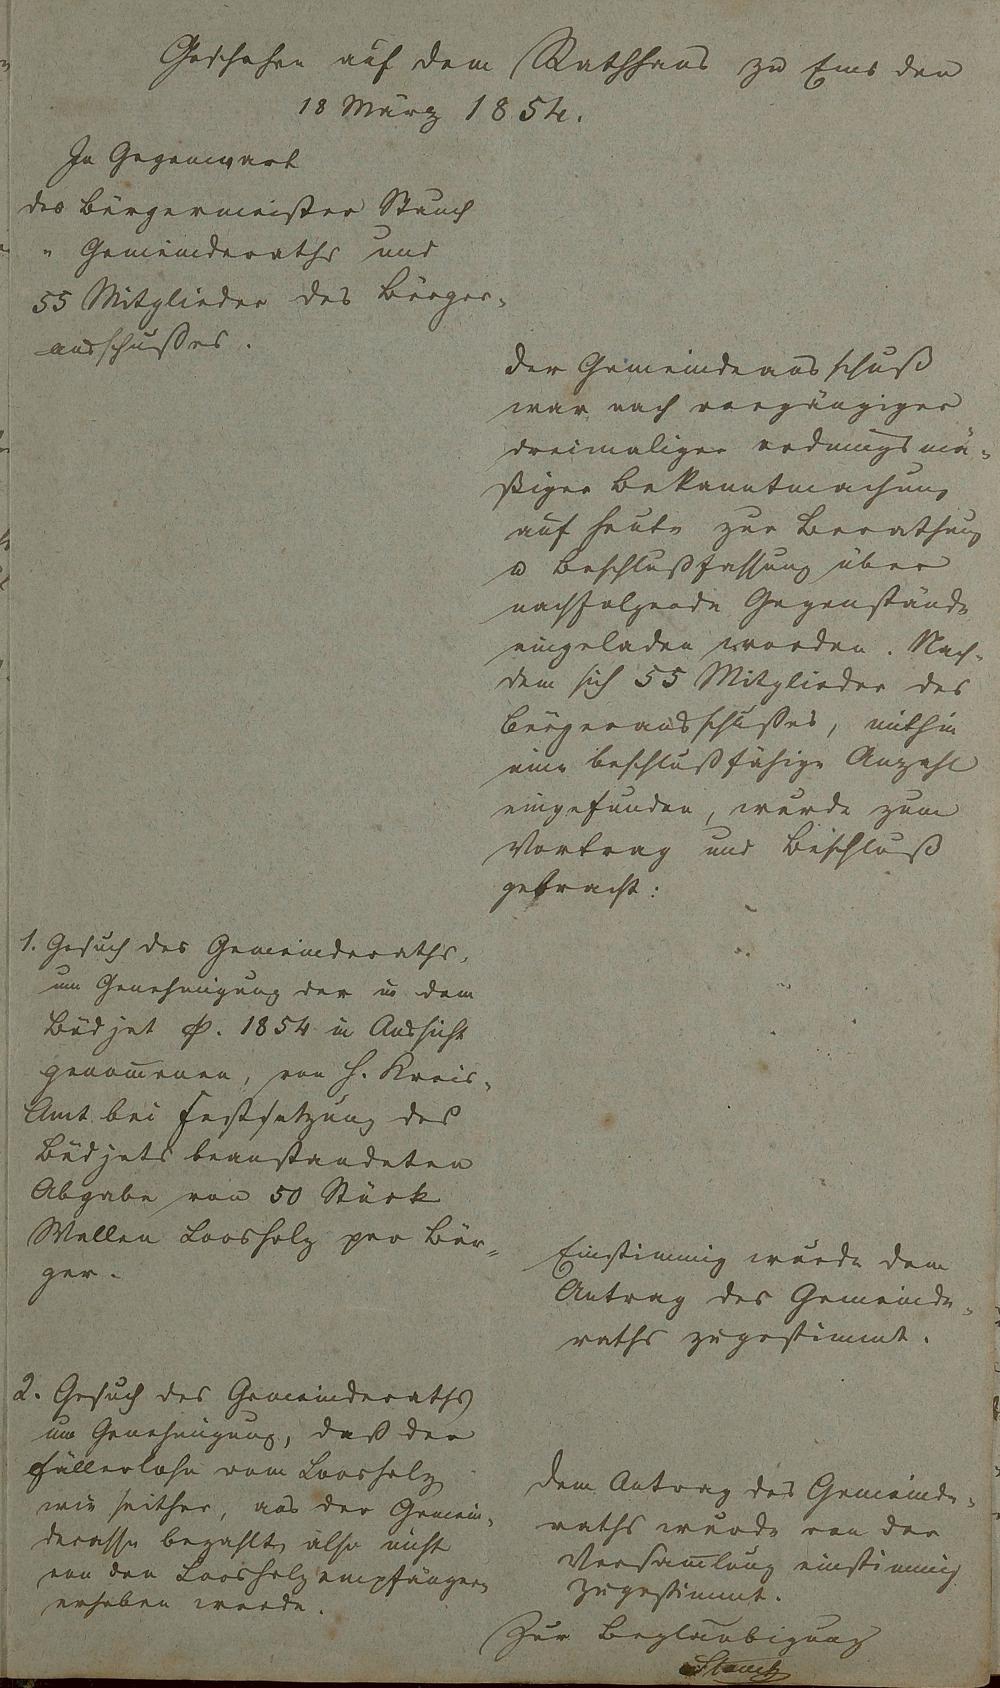 Geschehen auf dem Rathhaus zu Ems den
18 März 1854.
In Gegenwart
des Bürgermeister Stauch
" Gemeinderaths und
55 Mitglieder des Bürger-
ausschußes.
Der Gemeindeausschuß
war nach vorgängiger
dreimaliger ordnungsmä-
ßiger Bekanntmachung
auf heute zur Berathung
u Beschlußfassung über
nachfolgende Gegenstände
eingeladen worden. Nach-
dem sich 55 Mitglieder des
Bürgerausschußes, mithin
eine beschlußfähige Anzahl
eingefunden, wurde zum
Vortrag und Beschluß
gebracht:
1. Gesuch des Gemeinderaths,
um Genehmigung der in dem
Büdjet p. 1854 in Aussicht
genommenen, von H. Kreis-
Amt bei Festsetzung des
Büdjets beanstandeten
Abgabe von 50 Stück
Wellen Loosholz pro Bür-
ger.
Einstimmig wurde dem
Antrag des Gemeinde-
raths zugestimmt.
2. Gesuch des Gemeinderaths
um Genehmigung, daß der
Fällerlohn vom Loosholz
wie seither, aus der Gemein-
decasse bezahlt, also nicht
von den Loosholzempfängern
erhoben werde.
Dem Antrag des Gemeinde-
raths wurde von der
Versammlung einstimmig
zugestimmt.
Zur Beglaubigung
Stauch